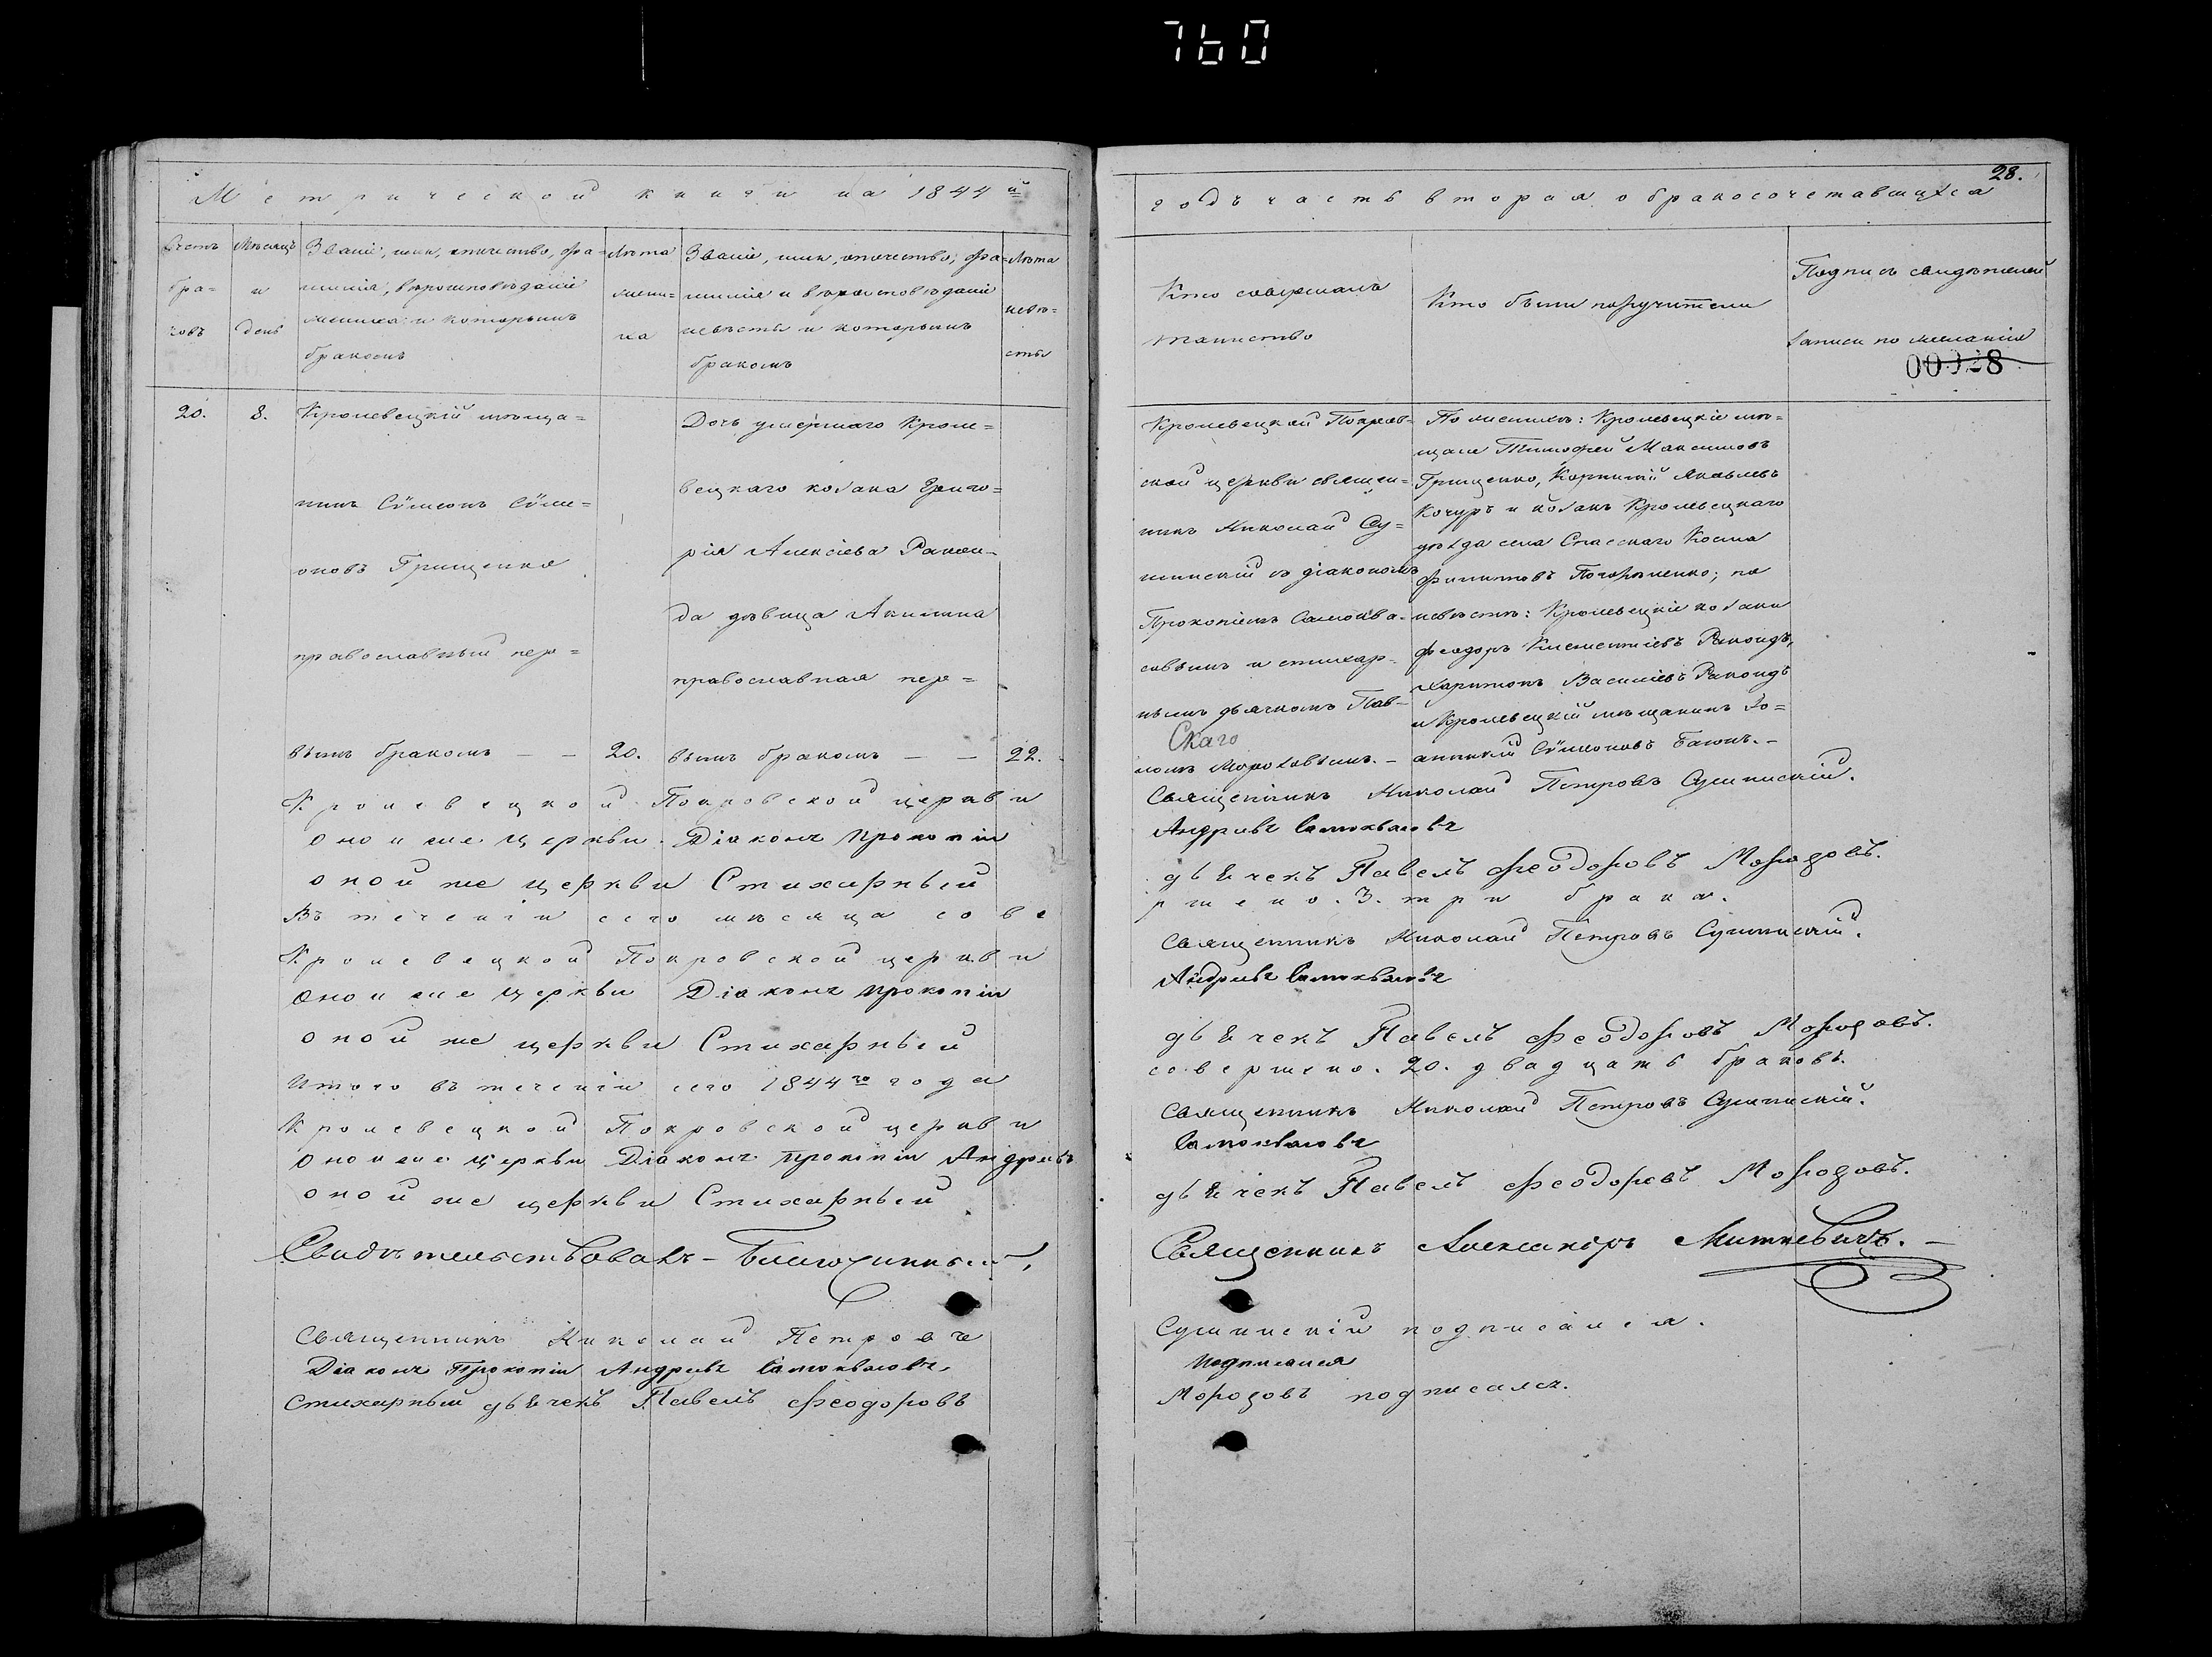 760
Метрической книги на 1844й
28.
годъ часть вторая о бракосочетавшихся
Счетъ бра- ковъ
Мѣсяцъ и день
Званіе, имя, отчество, фа=
милія, вѣроисповѣданіе
жениха и которымъ
бракомъ
Лѣта
жени=
ха
Званіе, имя, отчество, фа=
милія и вѣроисповѣданіе
невѣсты и которымъ
бракомъ
Лѣта
невѣ=
сты
Кто совершалъ
таинство
Кто были поручители
Подпись свидѣтелей
записи по желанію
00028
20.
8.
Кролевецкій мѣща=
нинъ Сѵмеонъ Сѵме=
оновъ Грищенко
православный пер=
вымъ бракомъ — — 20.
Дочь умершаго Кроле=
вецкаго козака Григо=
рія Алексіева Ракои-
да дѣвица Акилина
православная пер=
вымъ бракомъ — — 22.
Кролевецкой Покров-
ской церкви священ=
никъ Николай Су=
шинскій съ діакономъ
Прокопіемъ Самоква-
совымъ и стихар-
нымъ дьячкомъ Пав-
Скаго
ломъ Морозовымъ. —
По женихѣ: Кролевецкіе мѣ=
щане Тимофей Максимовъ
Грищенко, Корнилій Яковлевъ
Кочуръ и козакъ Кролевецкаго
уѣзда села Спасскаго Косма
Филиповъ ; по
невѣстѣ: Кролевецкіе козаки
Феодоръ Климентіевъ Ракоидъ,
Харитонъ Василіевъ Ракоидъ
и Кролевецкій мѣщанинъ Іо=
анникій Сѵмеоновъ Баюнъ. —
Кролевецкой Покровской церкви
Священникъ Николай Петровъ Сушинскій.
Оной же церкви Діаконъ Прокопій
Андріевъ Самоквасовъ
оной же церкви Стихарный
дьячекъ Павелъ Феодоровъ Морозовъ.
Въ теченіи сего мѣсяца сове
ршено. 3. три брака.
Кролевецкой Покровской церкви
Священникъ Николай Петровъ Сушинскій.
Оной же церкви Діаконъ Прокопій
Андріевъ Самоквасовъ
оной же церкви Стихарный
дьячекъ Павелъ Феодоровъ Морозовъ.
Итого въ теченіи сего 1844го года
совершено. 20. двадцать браковъ.
Кролевецкой Покровской церкви
Священникъ Николай Петровъ Сушинскій.
Оной же церкви Діаконъ Прокопій Андріевъ
Самоквасовъ
оной же церкви Стихарный
дьячекъ Павелъ Феодоровъ Морозовъ.
Свидѣтельствовалъ — Благочинный,
Священникъ Александръ Миткевичъ. —
Священникъ Николай Петровъ
Сушинскій подписался.
Діаконъ Прокопій Андріевъ Самоквасовъ,
подписался
Стихарный дьячекъ Павелъ Феодоровъ
Морозовъ подписался.